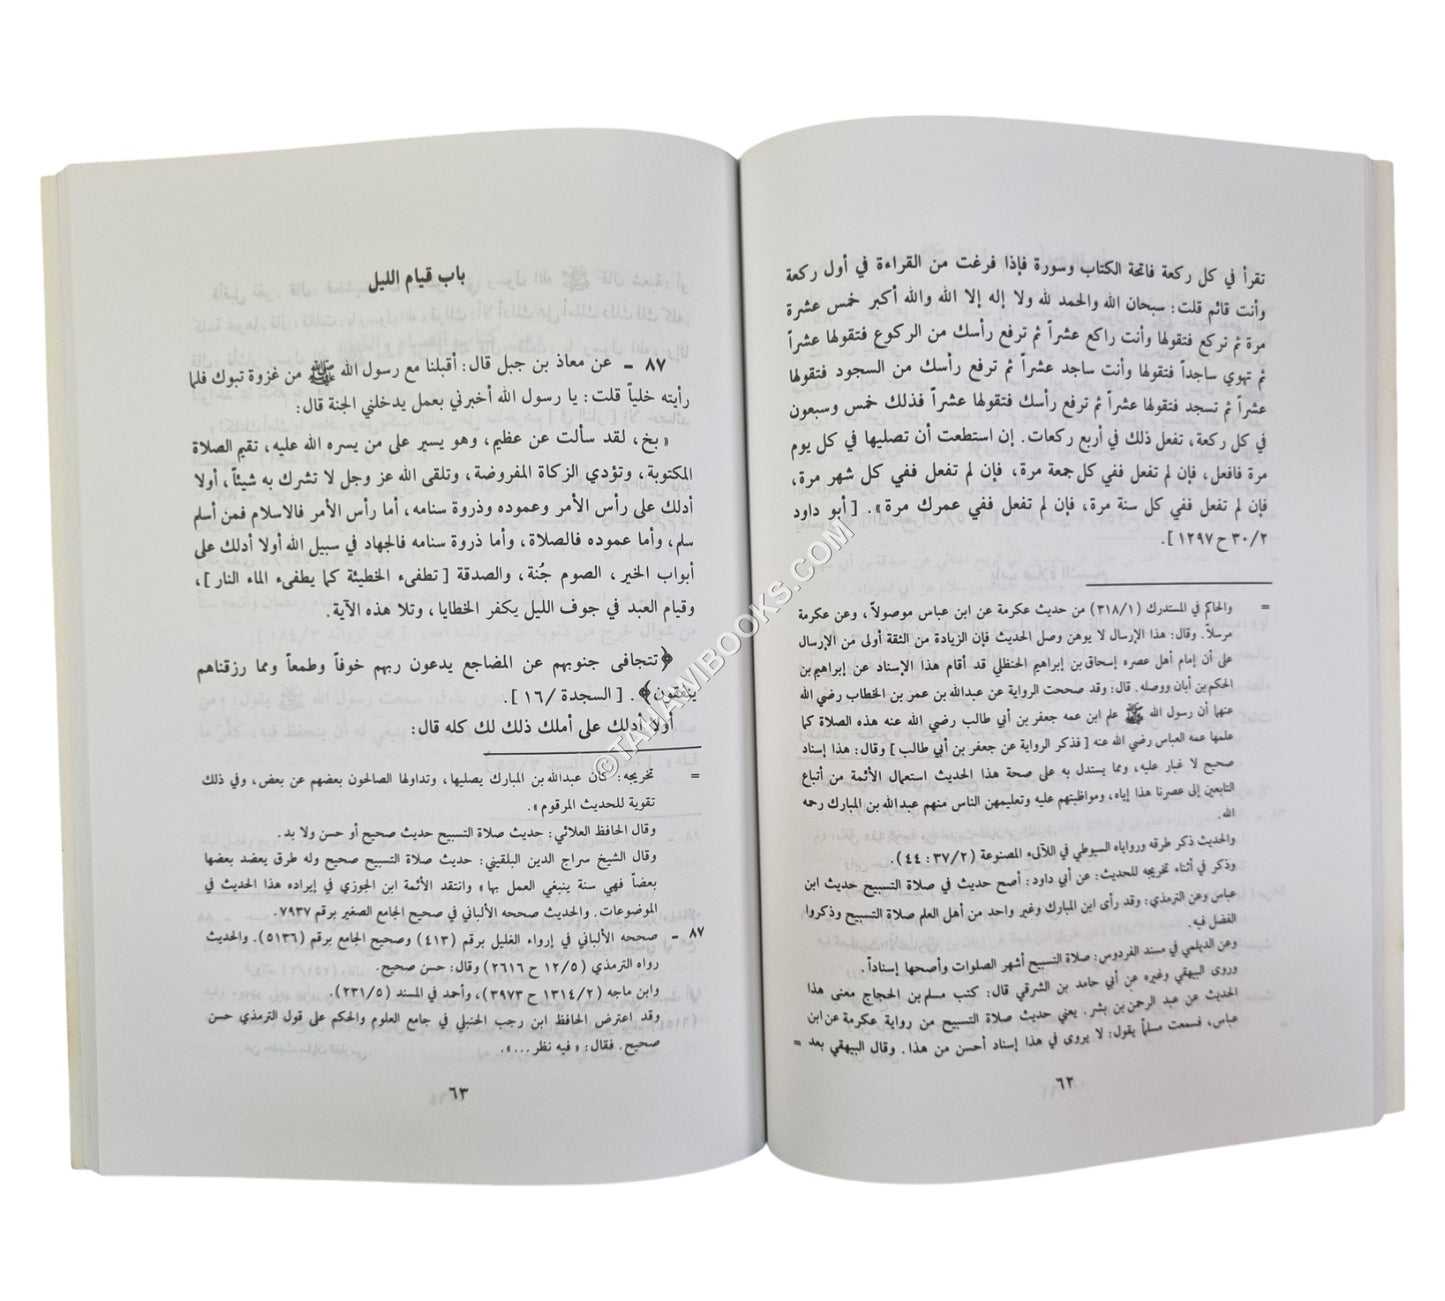 تقرأ في كل ركعة فاتحة الكتاب وسورة فإذا فرغت من القراءة في أول ركعة
وأنت قائم قلت: سبحان الله والحمد لله ولا إله إلا الله والله أكبر خمس عشرة
مرة ثم تركع فتقولها وأنت راكع عشراً ثم ترفع رأسك من الركوع فتقولها عشراً
ثم تهوي ساجداً فتقولها وأنت ساجد عشراً ثم ترفع رأسك من السجود فتقولها
عشراً ثم تسجد فتقولها عشراً ثم ترفع رأسك فتقولها عشراً فذلك خمس وسبعون
في كل ركعة، تفعل ذلك في أربع ركعات. إن استطعت أن تصليها في كل يوم
مرة فافعل، فإن لم تفعل ففي كل جمعة مرة، فإن لم تفعل ففي كل شهر مرة،
فإن لم تفعل ففي كل سنة مرة، فإن لم تفعل ففي عمرك مرة». [ أبو داود
٣٠/٢ ح ١٢٩٧ ].
= والحاكم في المستدرك (٣١٨/١) من حديث عكرمة عن ابن عباس موصولاً، وعن عكرمة
مرسلاً. وقال: هذا الإرسال لا يوهن وصل الحديث فإن الزيادة من الثقة أولى من الإرسال
على أن إمام أهل عصره إسحاق بن إبراهيم الحنظلي قد أقام هذا الإسناد عن إبراهيم بن
الحكم بن أبان ووصله. قال: وقد صححت الرواية عن عبدالله بن عمر بن الخطاب رضي الله
عنهما أن رسول الله ﷺ علم ابن عمه جعفر بن أبي طالب رضي الله عنه هذه الصلاة كما
علمها عمه العباس رضي الله عنه [ فذكر الرواية عن جعفر بن أبي طالب ] وقال: هذا إسناد
صحيح لا غبار عليه، ومما يستدل به على صحة هذا الحديث استعمال الأئمة من أتباع
التابعين إلى عصرنا هذا إياه، ومواظبتهم عليه وتعليمهن الناس منهم عبدالله بن المبارك رحمه
الله.
والحديث ذكر طرقه ورواياه السيوطي في اللآلىء المصنوعة (٣٧/٢ : ٤٤).
وذكر في أثناء تخريجه للحديث: عن أبي داود: أصح حديث في صلاة التسبيح حديث ابن
عباس وعن الترمذي: وقد رأى ابن المبارك وغير واحد من أهل العلم صلاة التسبيح وذكروا
الفضل فيه.
وعن الديلمي في مسند الفردوس: صلاة التسبيح أشهر الصلوات وأصحها إسناداً.
وروى البيهقي وغيره عن أبي حامد بن الشرقي قال: كتب مسلم بن الحجاج معنى هذا
الحديث عن عبد الرحمن بن بشر. يعني حديث صلاة التسبيح من رواية عكرمة عن ابن
عباس، فسمعت مسلماً يقول: لا يروى في هذا إسناد أحسن من هذا. وقال البيهقي بعد =
٦٢
باب قيام الليل
٨٧ - عن معاذ بن جبل قال: أقبلنا مع رسول الله ﷺ من غزوة تبوك فلما
رأيته خلياً قلت: يا رسول الله أخبرني بعمل يدخلني الجنة قال:
« بخ، لقد سألت عن عظيم، وهو يسير على من يسره الله عليه، تقيم الصلاة
المكتوبة، وتؤدي الزكاة المفروضة، وتلقى الله عز وجل لا تشرك به شيئاً، أولا
أدلك على رأس الأمر وعموده وذروة سنامه، أما رأس الأمر فالاسلام فمن أسلم
سلم، وأما عموده فالصلاة، وأما ذروة سنامه فالجهاد في سبيل الله أولا أدلك على
أبواب الخير، الصوم جُنة، والصدقة [ تطفىء الخطيئة كما يطفىء الماء النار ]،
وقيام العبد في جوف الليل يكفر الخطايا، وتلا هذه الآية.
﴿تتجافى جنوبهم عن المضاجع يدعون ربهم خوفاً وطمعاً ومما رزقناهم
ينفقون﴾. [ السجدة / ١٦ ].
أولا أدلك على أملك ذلك لك كله قال:
= تخريجه: كان عبدالله بن المبارك يصليها، وتداولها الصالحون بعضهم عن بعض، وفي ذلك
تقوية للحديث المرقوم».
وقال الحافظ العلائي: حديث صلاة التسبيح حديث صحيح أو حسن ولا بد.
وقال الشيخ سراج الدين البلقيني: حديث صلاة التسبيح صحيح وله طرق يعضد بعضها
بعضاً فهي سنة ينبغي العمل بها» وانتقد الأئمة ابن الجوزي في إيراده هذا الحديث في
الموضوعات. والحديث صححه الألباني في صحيح الجامع الصغير برقم ٧٩٣٧.
٨٧ - صححه الألباني في إرواء الغليل برقم (٤١٣) وصحيح الجامع برقم (٥١٣٦). والحديث
رواه الترمذي (١٢/٥ ح ٢٦١٦) وقال: حسن صحيح.
وابن ماجه (١٣١٤/٢ ح ٣٩٧٣)، وأحمد في المسند (٢٣١/٥).
وقد اعترض الحافظ ابن رجب الحنبلي في جامع العلوم والحكم على قول الترمذي حسن
صحيح. فقال: « فيه نظر ...».
٦٣
©TAHAWIBOOKS.COM